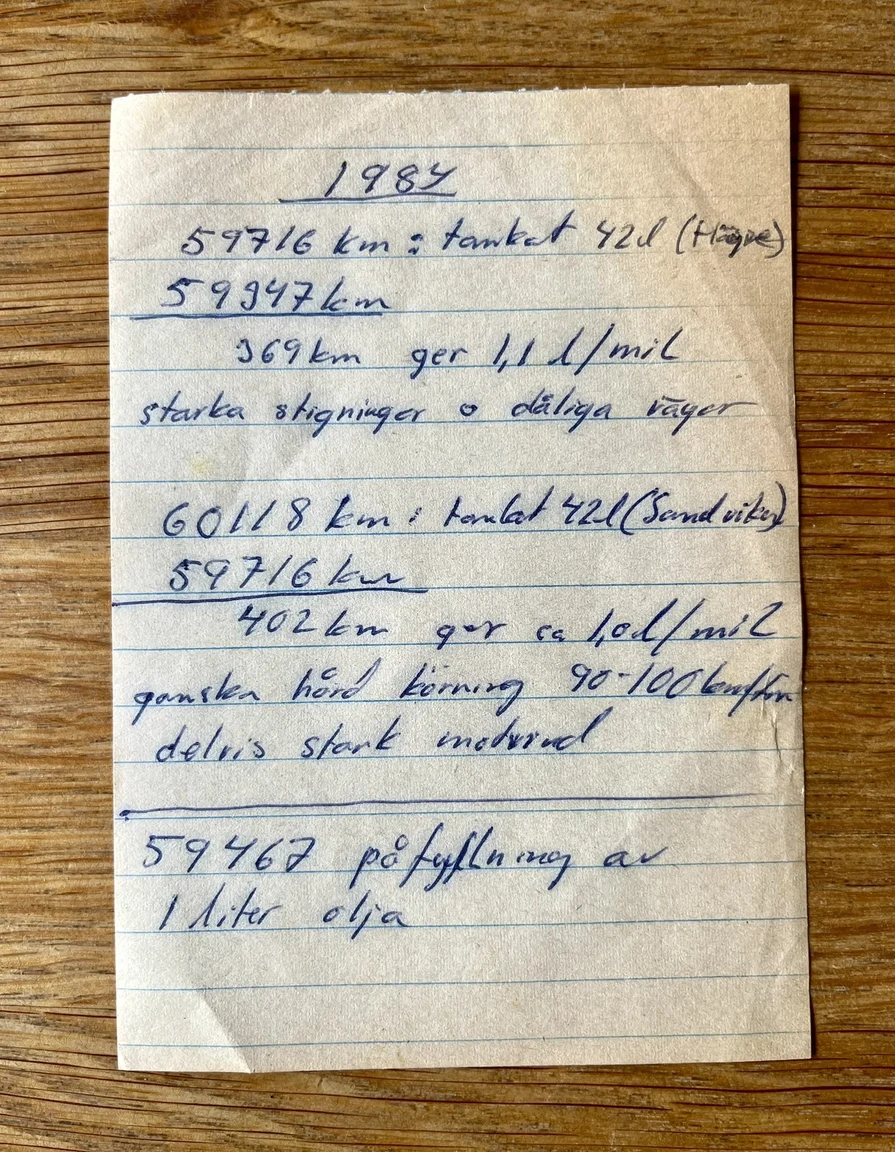 1984
59716 km : tankat 42l
59347 km
369 km ger 1,1 l/mil
starka stigningar o dåliga vägar
60118 km : tankat 42l (Sandviken)
59716 km
402 km ger ca 1,0 l/mil
ganska hård körning 90-100 km/tim
delvis stark motvind
59467 påfyllning av
1 liter olja